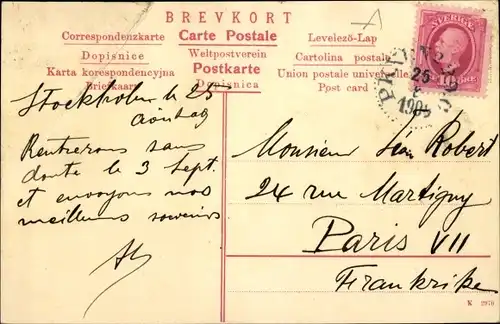 BREVKORT
Correspondenzkarte
Carte Postale
Levelező-Lap
Dopisnice
Weltpostverein
Cartolina postale
Karta korespondencyjna
Postkarte
Union postale universelle
Briefkaart
Dopisnica
Post card
SVERIGE
25
1905
Stockholm le 25
Rentrerons sans
doute le 3 Sept.
et envoyons nos
meilleurs souvenirs
Monsieur Jean Robert
24 rue Martigny
Paris VII
Frankrike
K 2970